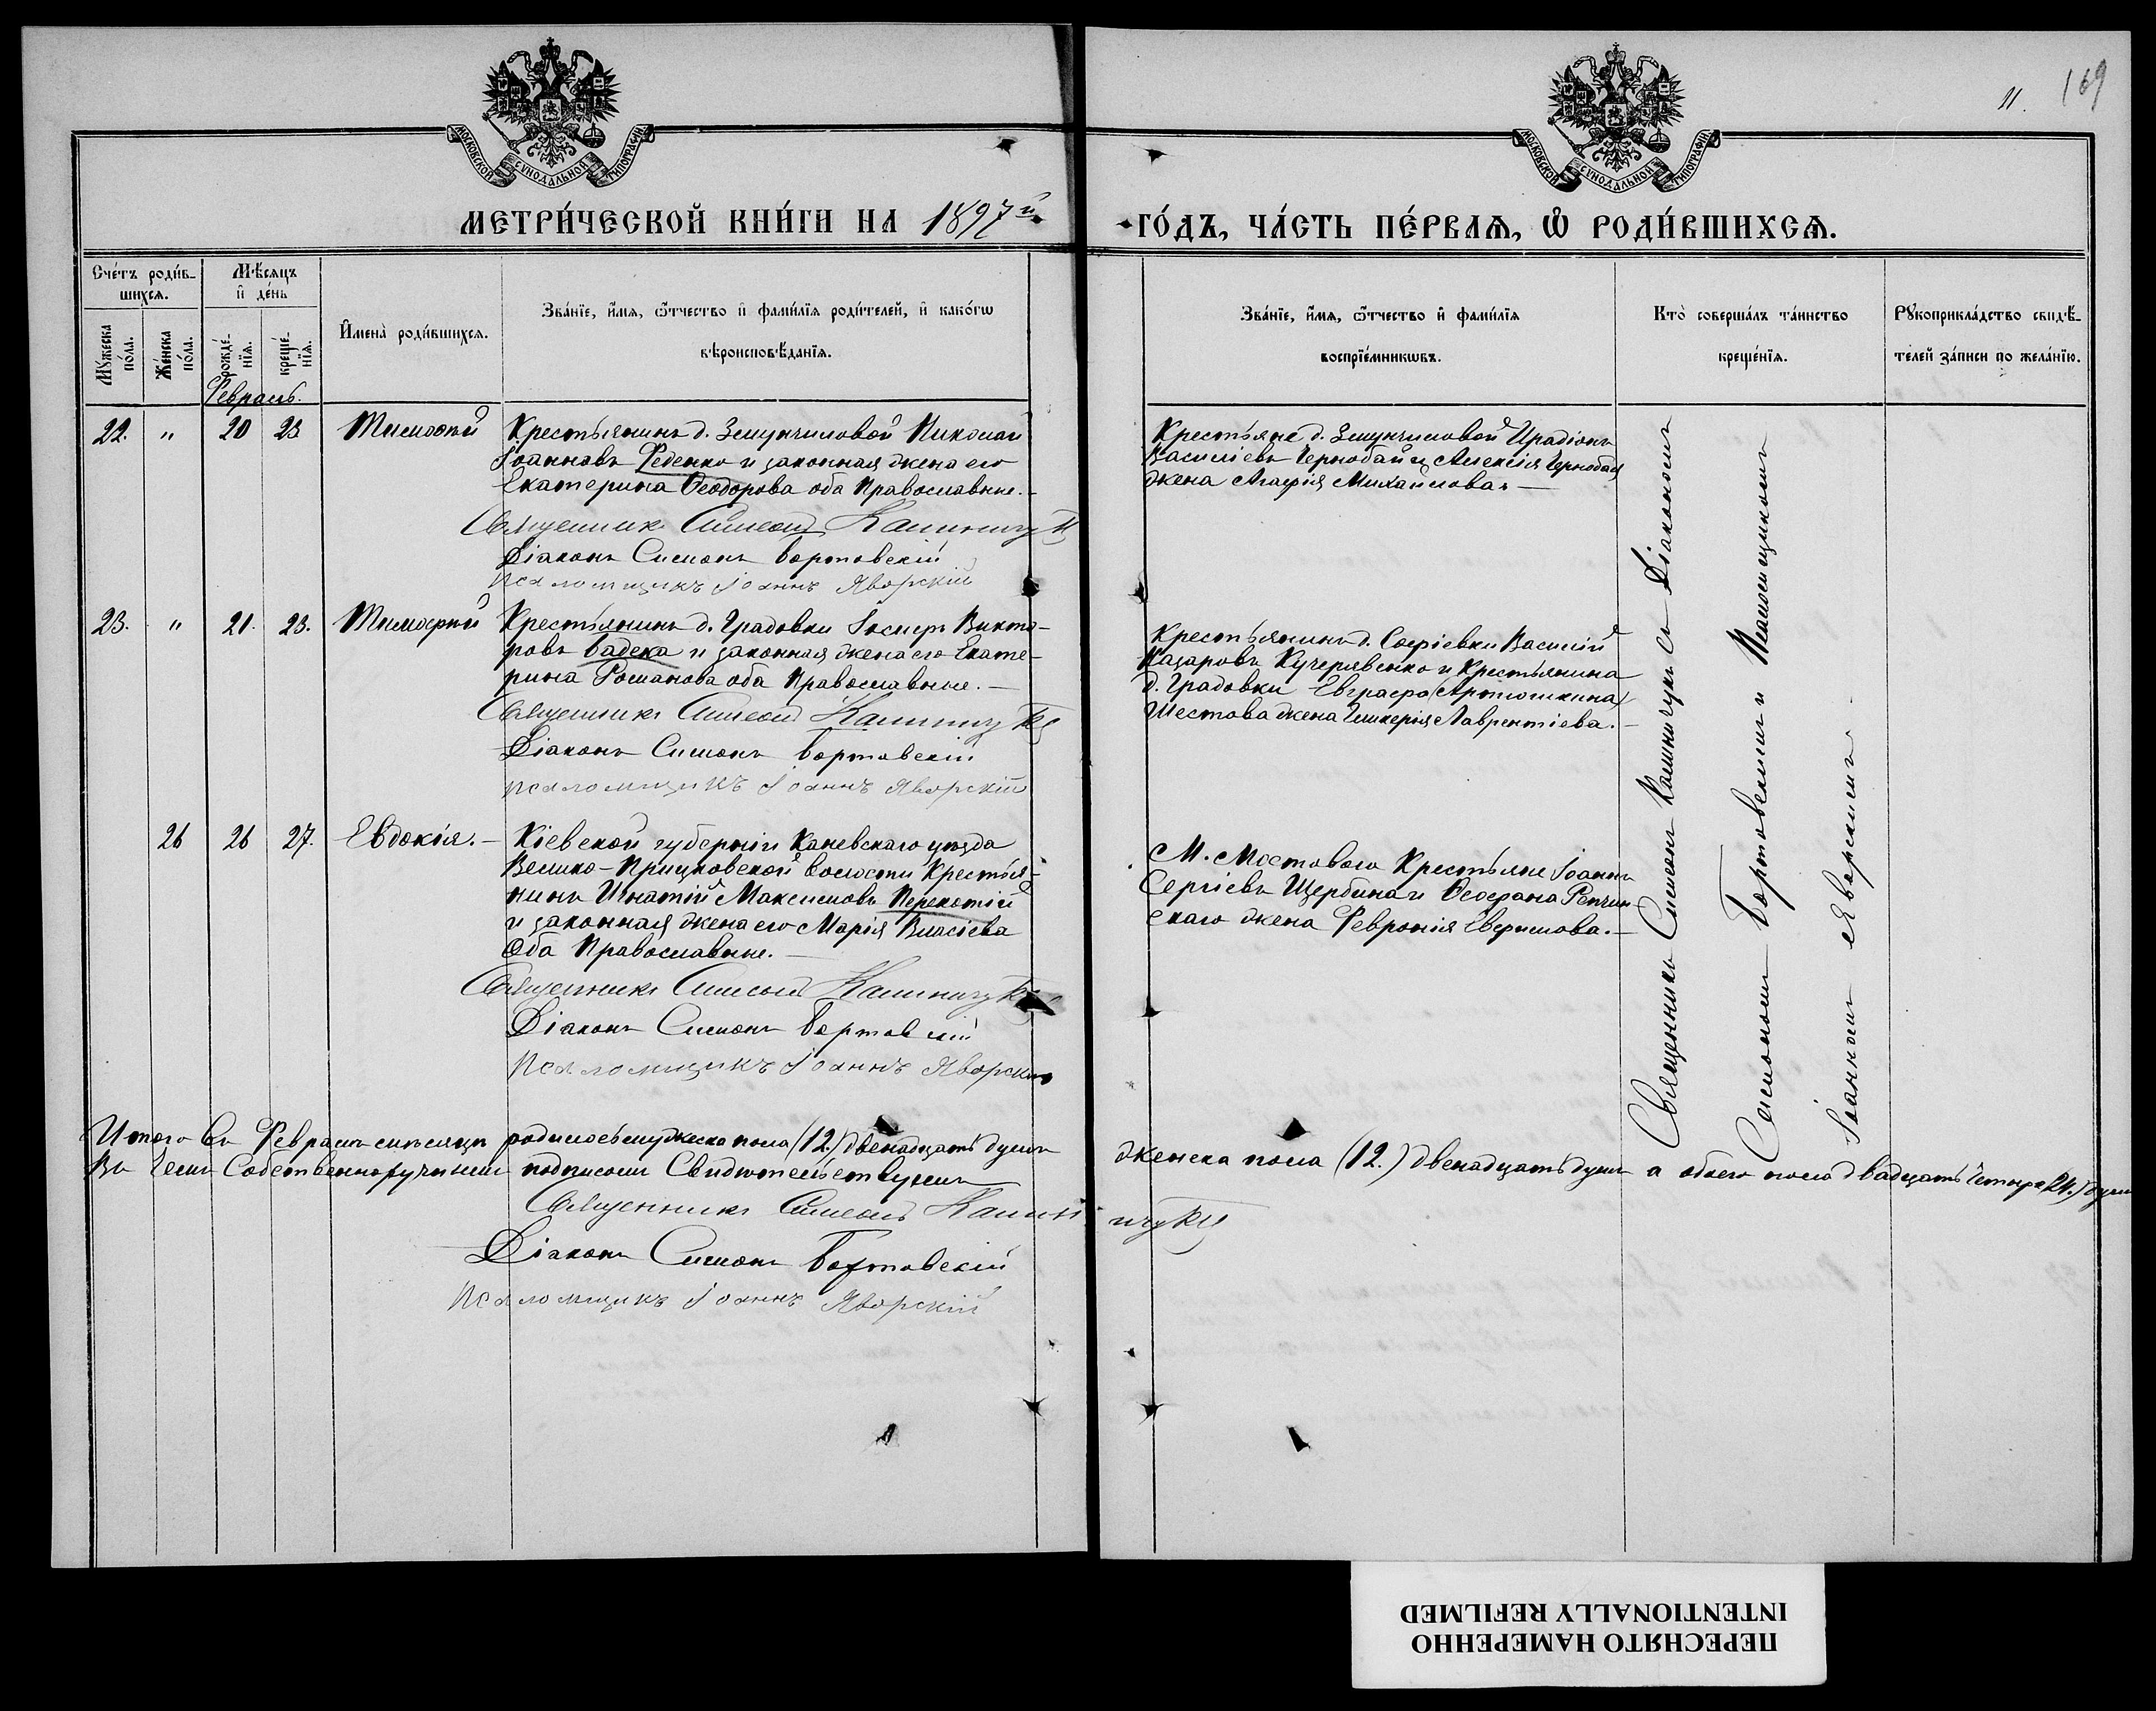 МОСКОВСКОЙ СУНОДАЛЬНОЙ ТИПОГРАФІИ
МОСКОВСКОЙ СУНОДАЛЬНОЙ ТИПОГРАФІИ
11. 169
МЕТРИ́ЧЕСКОЙ КНИ́ГИ НА 1897й
ГО́ДЪ, ЧА́СТЬ ПЕ́РВАѦ, Ѡ҆ РОДИ́ВШИХСѦ.
Сче́тъ роди́в-
шихсѧ.
Мѣ́сѧцъ
и҆ де́нь
Мꙋ́жеска
по́ла.
Же́нска
по́ла.
рожде́-
нїѧ.
креще́-
нїѧ.
И҆мена̀ роди́вшихсѧ.
Зва́нїе, и҆́мѧ, ѻ҆́тчество и҆ фами́лїѧ роди́телей, и҆ како́гѡ
вѣроисповѣ́данїѧ.
Зва́нїе, и҆́мѧ, ѻ҆́тчество и҆ фами́лїѧ
воспрїе́мникѡвъ.
Кто̀ соверша́лъ та́инство
креще́нїѧ.
Рꙋкоприкла́дство свидѣ́-
телей за́писи по жела́нїю.
Февраль.
22. " 20 23 Тимофей
Крестьянинъ д. Николай
Іоанновъ Реденко и законная жена его
Екатерина Ѳеодорова оба Православные.
Священникъ Симеонъ Калиничукъ
Діаконъ Симонъ Бортовскій
Псаломщикъ Іоаннъ Яворскій
Крестьяне д. Иродіонъ
Василіевъ Чернобай и Алексія Чернобая
жена Агафія Михаилова.
23. " 21. 23. Тимофей
Крестьянинъ д. Градовки Іосифъ Викто-
ровъ Бадека и законная жена его Екате-
рина Романова оба Православные.
Священникъ Симеонъ Калиничукъ
Діаконъ Симонъ Бортовскій
Псаломщикъ Іоаннъ Яворскій
Крестьянинъ д. Софіевки Василій
Назаровъ Кучерявенко и Крестьянина
д. Градовки Евграфа (Артюшкина)
Шестова жена Гликерія Лаврентіева.
26 26 27. Евдокія.
Кіевской губерніи Каневскаго уѣзда
Велико-Прицковской волости Крестья-
нинъ Игнатій Максимовъ Перекотій
и законная жена его Марія Власіева
Оба Православные.
Священникъ Симеонъ Калиничукъ
Діаконъ Симонъ Бортовскій
Псаломщикъ Іоаннъ Яворскій
М. Мостового Крестьяне Іоаннъ
Сергіевъ Щербина и Ѳеофана Репчин-
скаго жена Февронія Евфимова.
Священникъ Симеонъ Калиничукъ съ Діакономъ
Симономъ Бортовскимъ и Псаломщикомъ
Іоанномъ Яворскимъ.
Итого въ Февралѣ мѣсяцѣ родилось мужеска пола (12.) двенадцать душъ
женска пола (12.) двенадцать душъ а обоего пола двадцать четыре (24.) души
Въ чемъ Собственноручными подписями Свидѣтельствуемъ
Священникъ Симеонъ Калиничукъ
Діаконъ Симонъ Бортовскій
Псаломщикъ Іоаннъ Яворскій
ПЕРЕСНЯТО НАМЕРЕННО
INTENTIONALLY REFILMED